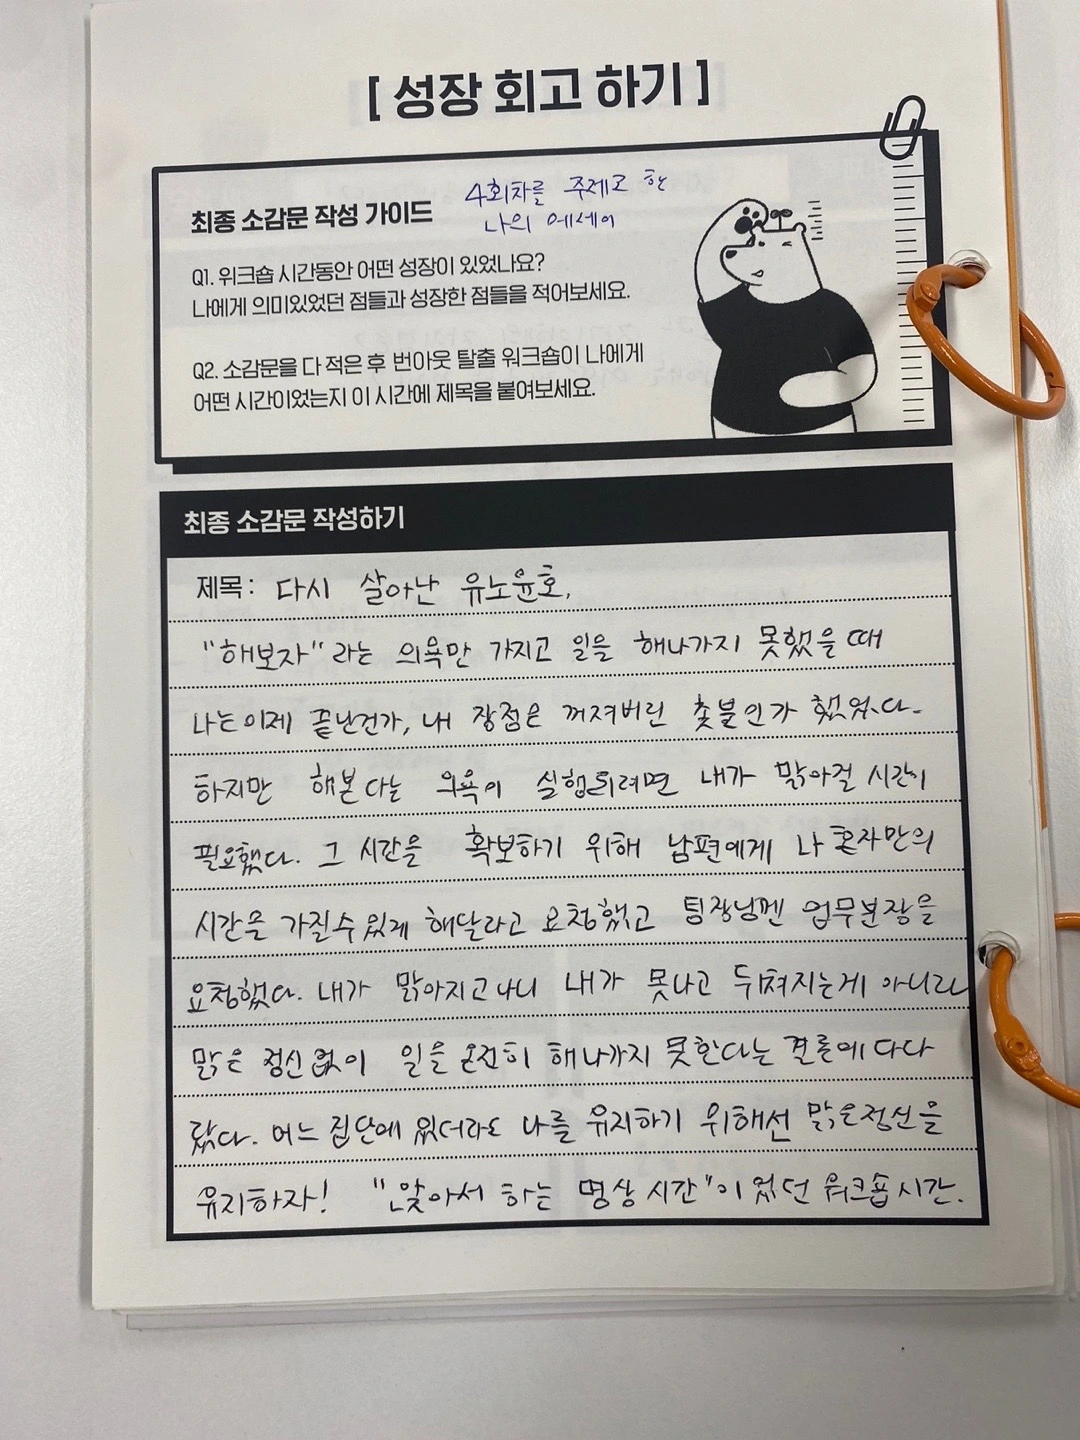 [ 성장 회고 하기 ]
최종 소감문 작성 가이드
4회차를 주제로 한
나의 에세이
Q1. 워크숍 시간동안 어떤 성장이 있었나요?
나에게 의미있었던 점들과 성장한 점들을 적어보세요.
Q2. 소감문을 다 적은 후 번아웃 탈출 워크숍이 나에게
어떤 시간이었는지 이 시간에 제목을 붙여보세요.
최종 소감문 작성하기
제목: 다시 살아난 유노윤호,
"해보자"라는 의욕만 가지고 일을 해나가지 못했을 때
나는 이제 끝난건가, 내 장점은 꺼져버린 촛불인가 했었다.
하지만 해본다는 의욕이 실험되려면 내가 맑아질 시간이
필요했다. 그 시간을 확보하기 위해 남편에게 나 혼자만의
시간을 가질수있게 해달라고 요청했고 팀장님껜 업무분장을
요청했다. 내가 맑아지고나니 내가 못나고 뒤쳐지는게 아니라
맑은 정신없이 일을 온전히 해나가지 못한다는 결론에 다다
랐다. 어느 집단에 있더라도 나를 유지하기 위해선 맑은정신을
유지하자! "앉아서 하는 명상시간"이었던 워크숍시간.